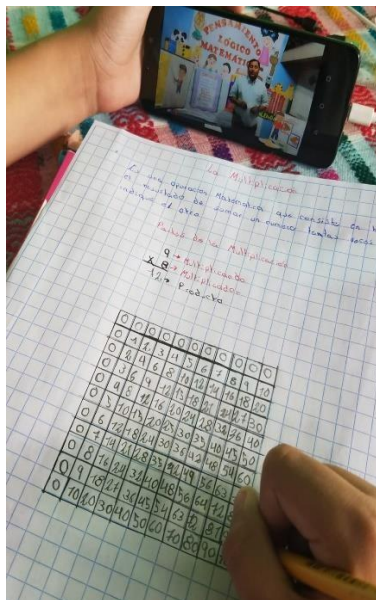 PENSAMIENTO
LÓGICO
MATEMÁTICO
La Multiplicación
Es una operación Matemática que consiste en
el resultado de sumar un número tantas veces
indique el otro
Partes de la Multiplicación
9 → Multiplicando
x 8 → Multiplicador
12 → Producto
0 0 0 0 0 0 0 0 0 0 0
0 1 2 3 4 5 6 7 8 9 10
0 2 4 6 8 10 12 14 16 18 20
0 3 6 9 12 15 18 21 24 27 30
0 4 8 12 16 20 24 28 32 36 40
0 5 10 15 20 25 30 35 40 45 50
0 6 12 18 24 30 36 42 48 54 60
0 7 14 21 28 35 42 49 56 63
0 8 16 24 32 40 48 56 64 72
0 9 18 27 36 45 54 63
0 10 20 30 40 50 60 70 80 90